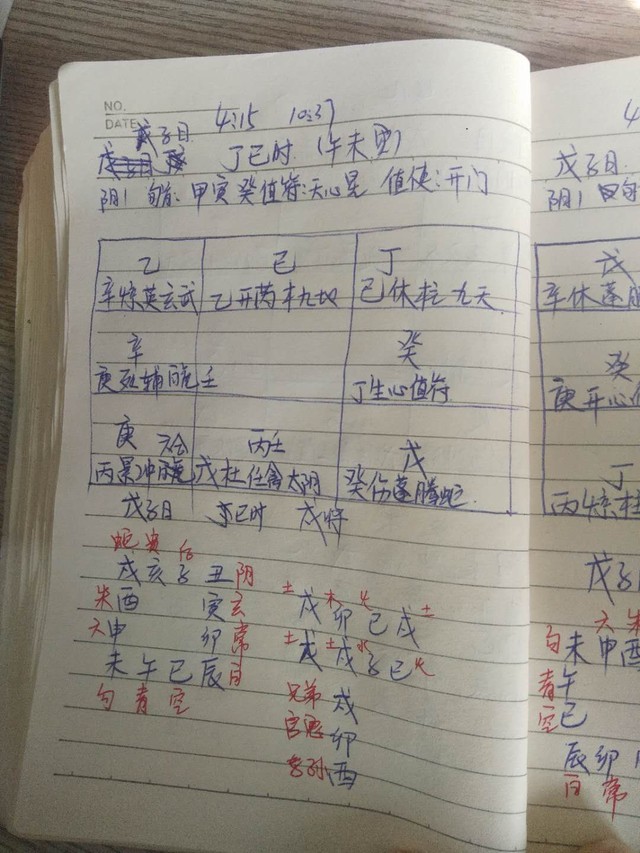 NO.
DATE 4:15 10:37
戊子日
丁巳时 (午未空)
阴1 旬首: 甲寅癸 值符: 天心星 值使: 开门
乙 己 丁
辛惊英玄武 乙开芮 九地 己休柱 九天
辛 癸
庚死辅 壬 丁生心值符
庚 六合 丙壬 戊
丙景冲 戊杜任禽太阴 癸伤蓬腾蛇
戊子日 丁巳时 戌将
蛇 贵 后
戌亥子丑 阴
朱 酉 寅 玄
六 申 卯 常
未午巳辰 白
勾 青 空
土 木 火
戌 卯 巳 戌 土
土 土 水
戌 戊 子 巳 火
兄弟 戌
官鬼 卯
子孙 酉
4
戊子日
阴1 旬
戊
辛休蓬腾
癸
庚开心值
丁
丙惊柱
戊子
六 朱
勾 未申酉
青 午
空 巳
辰卯
白 常